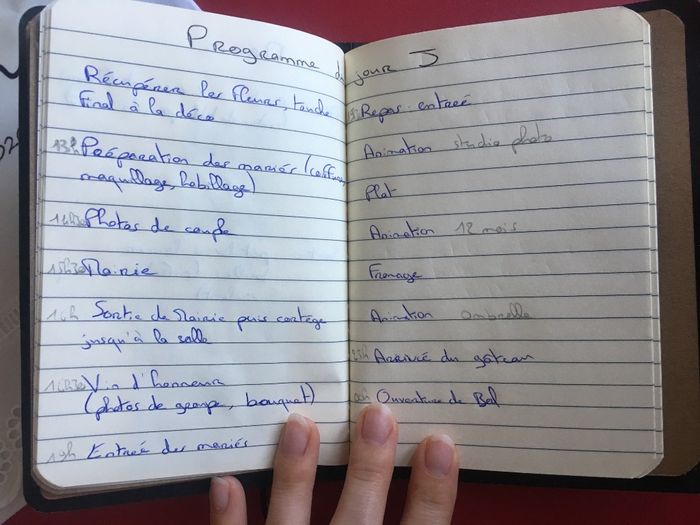 Programme du jour J
Récupérer les fleurs, touche
final à la déco
13h Préparation des mariés (coiffure,
maquillage, habillage)
14h30 Photos de couple
15h30 Mairie
16h Sortie de Mairie puis cortège
jusqu'à la salle
16h30 Vin d'honneur
(photos de groupe, bouquet)
19h Entrée des mariés
Repas: entrée
Animation studio photo
Plat
Animation 12 mois
Fromage
Animation ombrelle
23h Arrivée du gâteau
00h Ouverture de Bal